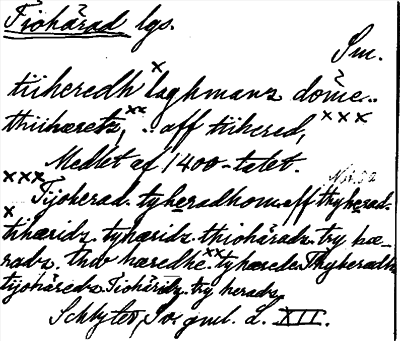 Tiohärad lgs.
Sm.
tiiheredh laghmanz döme..
thiihæretz, .. aff tiihered,
Medlet af 1400-talet.
Tijoherad. tyheradhom. aff thyherad.
tihæridz. tyhæridz. thiohäradz. try hæ-
radz. thw hæredhe. tyhærede. Thyheradh
tyohäredz. Tiohäridz. try herads.
Schlyter, Sv. gml. L. XII.